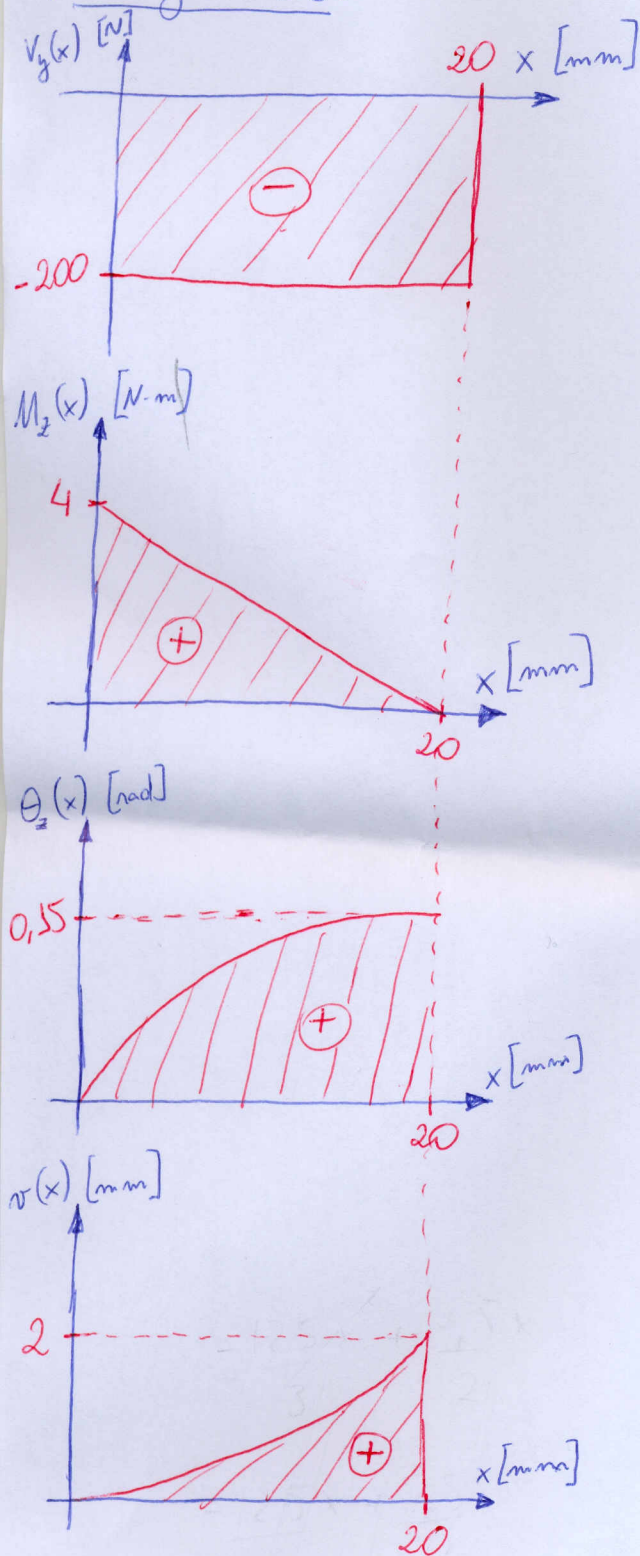 V_y(x) [N]
20 x [mm]
-
-200
M_z(x) [N·m]
4
+
x [mm]
20
θ_z(x) [rad]
0,15
+
x [mm]
20
v(x) [mm]
2
+
x [mm]
20